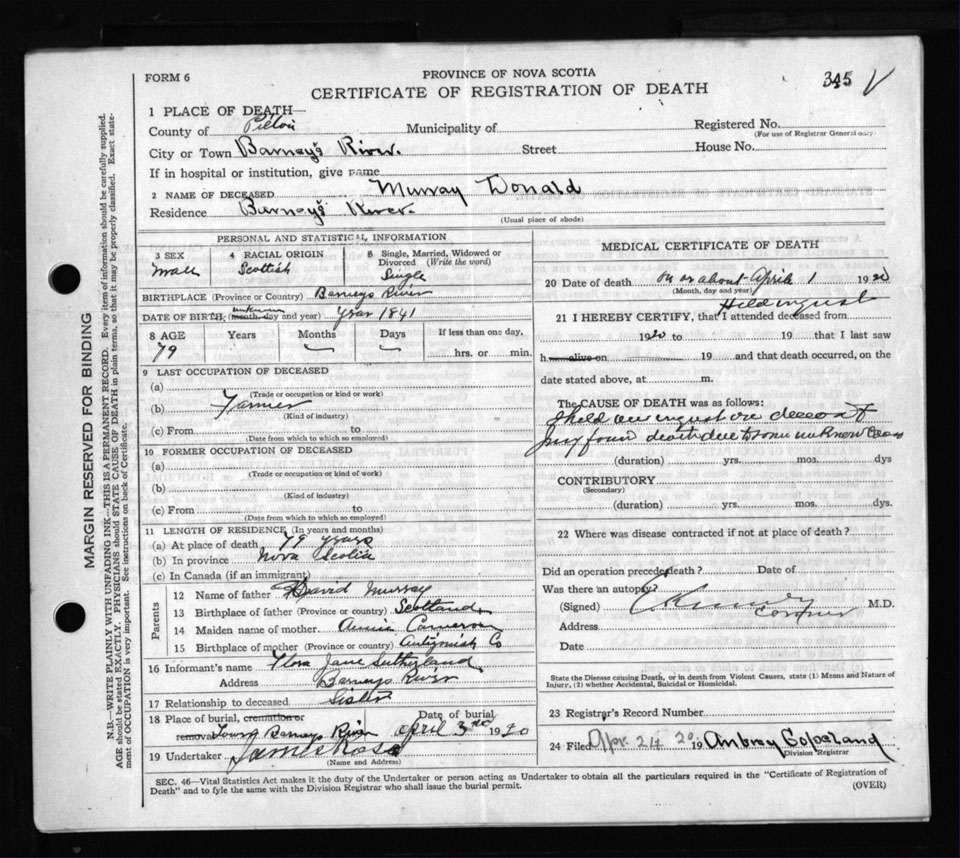 FORM 6
PROVINCE OF NOVA SCOTIA
345 V
CERTIFICATE OF REGISTRATION OF DEATH
1 PLACE OF DEATH—
County of Pictou Municipality of Registered No.
(For use of Registrar General only.
City or Town Barney's River. Street House No.
If in hospital or institution, give name
2 NAME OF DECEASED Murray Donald
Residence Barney's River.
(Usual place of abode)
PERSONAL AND STATISTICAL INFORMATION
3 SEX 4 RACIAL ORIGIN 5 Single, Married, Widowed or Divorced (Write the word)
male Scottish Single
BIRTHPLACE (Province or Country) Barneys River
DATE OF BIRTH (month day and year) unknown year 1841
8 AGE Years Months Days If less than one day,
79 — — hrs. or min.
9 LAST OCCUPATION OF DECEASED
(a)
(Trade or occupation or kind or work)
(b) Farmer
(Kind of industry)
(c) From to
(Date from which to which so employed)
10 FORMER OCCUPATION OF DECEASED
(a)
(Trade or occupation or kind of work)
(b)
(Kind of industry)
(c) From to
(Date from which to which so employed)
11 LENGTH OF RESIDENCE (In years and months)
(a) At place of death 79 years
(b) In province Nova Scotia
(c) In Canada (if an immigrant)
Parents
12 Name of father David Murray
13 Birthplace of father (Province or country) Scotland
14 Maiden name of mother Annie Cameron
15 Birthplace of mother (Province or country) Antigonish Co
16 Informant's name Flora Jane Sutherland
Address Barneys River
17 Relationship to deceased Sister
18 Place of burial, cremation or Date of burial
removal Barneys River April 3rd 1920
19 Undertaker James Ross
(Name and Address)
MEDICAL CERTIFICATE OF DEATH
20 Date of death on or about April 1 1920
(Month, day and year)
Held inquest
21 I HEREBY CERTIFY, that I attended deceased from
1920 to 19 that I last saw
h alive on 19 and that death occurred, on the
date stated above, at m.
The CAUSE OF DEATH was as follows:
I held an inquest
jury found death due to some unknown
(duration) yrs. mos. dys
CONTRIBUTORY
(Secondary)
(duration) yrs. mos. dys.
22 Where was disease contracted if not at place of death?
Did an operation precede death? Date of
Was there an autopsy?
(Signed) Coroner M.D.
Address
Date
State the Disease causing Death, or in death from Violent Causes, state (1) Means and Nature of
Injury, (2) whether Accidental, Suicidal or Homicidal.
23 Registrar's Record Number
24 Filed Apr. 24 20 19 Aubrey Copeland
Division Registrar
SEC. 46—Vital Statistics Act makes it the duty of the Undertaker or person acting as Undertaker to obtain all the particulars required in the "Certificate of Registration of
Death" and to fyle the same with the Division Registrar who shall issue the burial permit.
(OVER)
MARGIN RESERVED FOR BINDING
N.B.—WRITE PLAINLY WITH UNFADING INK—THIS IS A PERMANENT RECORD. Every item of information should be carefully supplied.
AGE should be stated EXACTLY. PHYSICIANS should STATE CAUSE OF DEATH in plain terms, so that it may be properly classified. Exact state-
ment of OCCUPATION is very important. See instructions on back of Certificate.